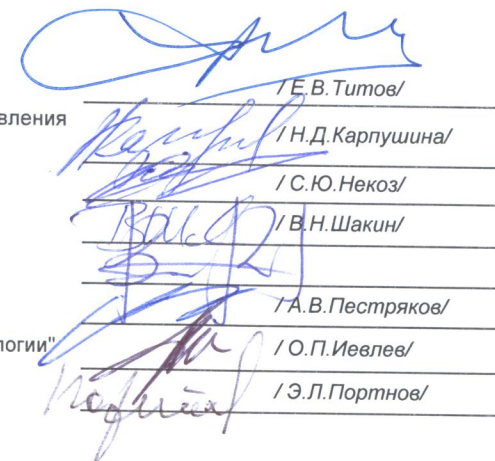 / Е.В.Титов/
вления
/ Н.Д.Карпушина/
/ С.Ю.Некоз/
/ В.Н.Шакин/
/ А.В.Пестряков/
логии" / О.П.Иевлев/
/ Э.Л.Портнов/